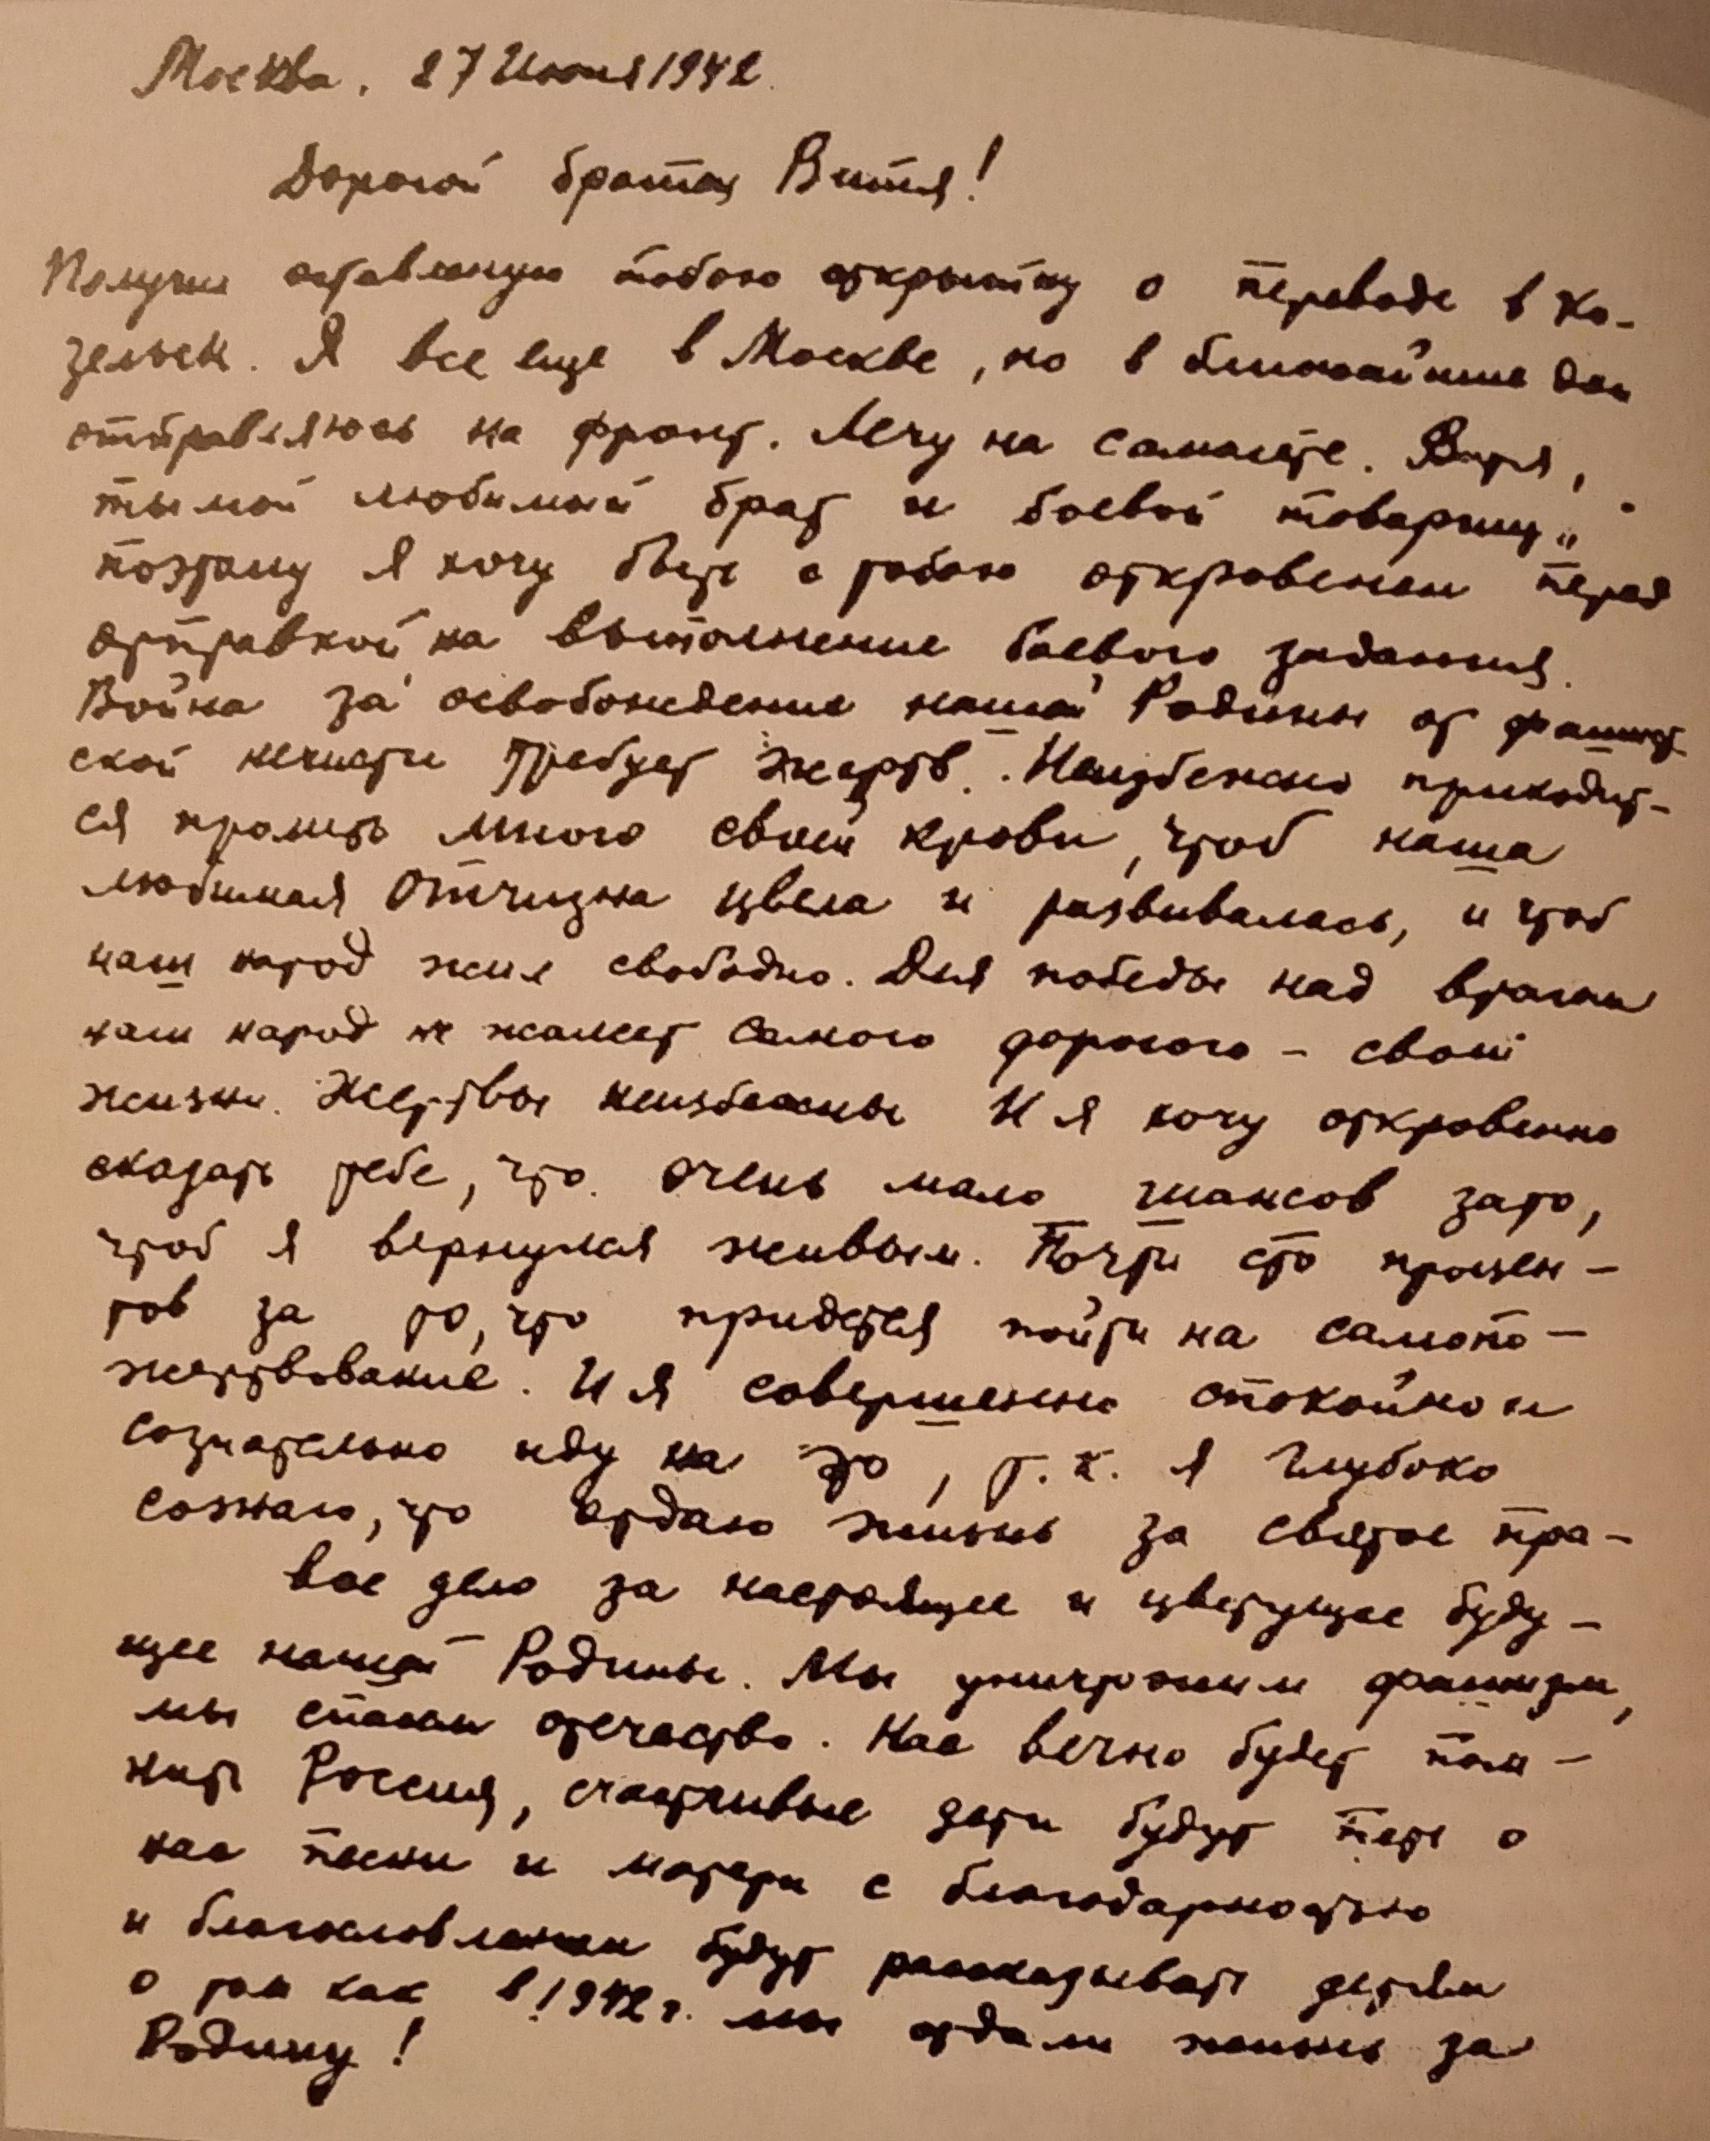 Москва. 27 Июня 1942.
Дорогой братан Витя!
Получил оставленную тобою открытку о переводе в Ко-
зельск. Я все еще в Москве, но в ближайшие дни
отправляюсь на фронт. Лечу на самолете. Витя,
ты мой любимый брат и боевой товарищ,
поэтому я хочу быть с тобою откровенен перед
отправкой на выполнение боевого задания.
Война за освобождение нашей Родины от фашист-
ской нечисти требует жертв. Неизбежно приходит-
ся пролить много своей крови, чтоб наша
любимая Отчизна цвела и развивалась, и чтоб
наш народ жил свободно. Для победы над врагом
наш народ не жалеет самого дорогого – своей
жизни. Жертвы неизбежны И я хочу откровенно
сказать тебе, что очень мало шансов за то,
чтоб я вернулся живым. Почти сто процен-
тов за то, что придется пойти на самопо-
жертвование. И я совершенно спокойно и
сознательно иду на это, т.к. я глубоко
сознаю, что отдаю жизнь за святое пра-
вое дело за настоящее и цветущее буду-
щее нашей Родины. Мы уничтожим фашизм,
мы спасем отечество. Нас вечно будет пом-
нить Россия, счастливые дети будут петь о
нас песни и матери с благодарностью
и благословлением будут рассказывать детям
о том как в 1942 г. мы отдали жизнь за
Родину!